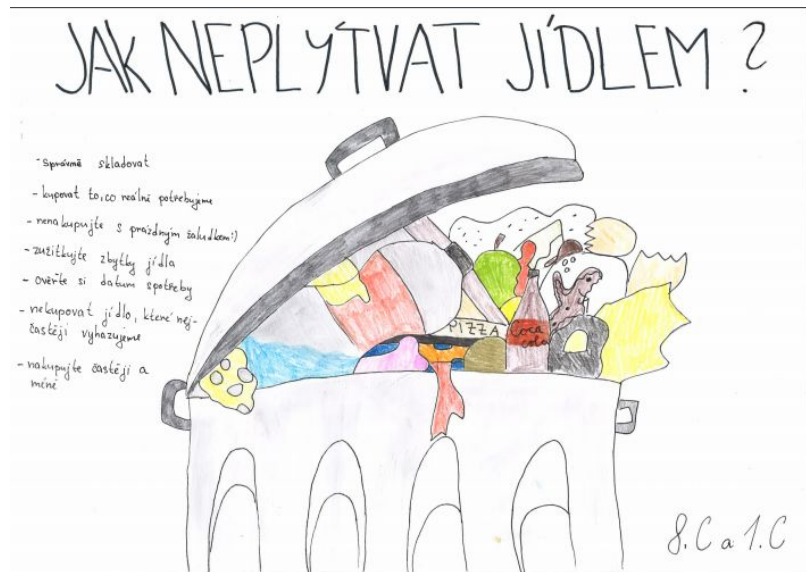 JAK NEPLÝTVAT JÍDLEM ?
- správně skladovat
- kupovat to, co reálně potřebujeme
- nenakupujte s prázdným žaludkem:)
- zužitkujte zbytky jídla
- ověřte si datum spotřeby
- nekupovat jídlo, které nej-
častěji vyhazujeme
- nakupujte častěji a
méně
PIZZA
Coca
cola
8.C a 1.C